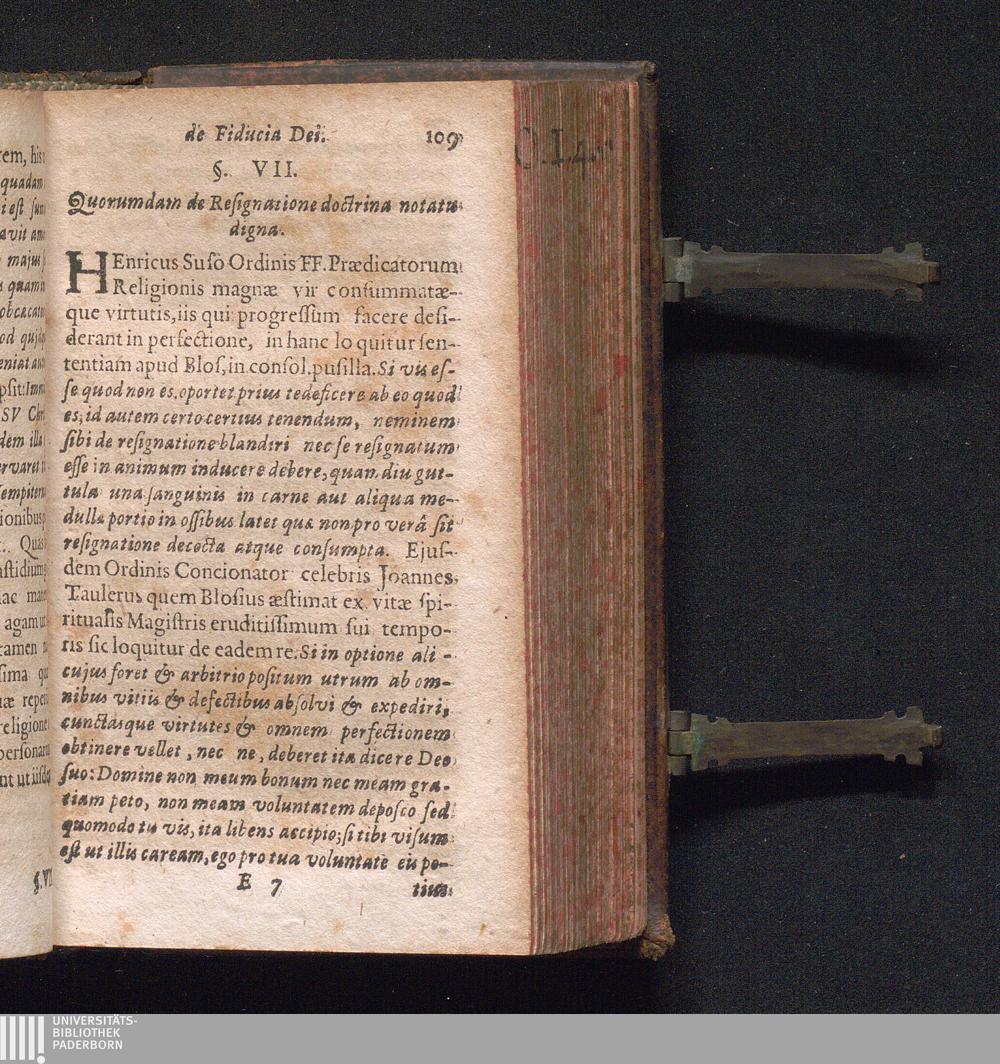 de Fiducia Dei.
109
§. VII.
Quorumdam de Resignatione doctrina notatu
digna.
HEnricus Suso Ordinis FF. Prædicatorum
Religionis magnæ vir consummatæ-
que virtutis, iis qui progressum facere desi-
derant in perfectione, in hanc loquitur sen-
tentiam apud Blos, in consol. pusilla. Si vis es-
se quod non es, oportet prius te deficere ab eo quod
es; id autem certo certius tenendum, neminem
sibi de resignatione blandiri nec se resignatum
esse in animum inducere debere, quan diu gut-
tula una sanguinis in carne aut aliqua me-
dullæ portio in ossibus latet quæ non pro verâ sit
resignatione decocta atque consumpta. Ejus-
dem Ordinis Concionator celebris Joannes
Taulerus quem Blosius æstimat ex vitæ spi-
ritualis Magistris eruditissimum sui tempo-
ris sic loquitur de eadem re. Si in optione ali-
cujus foret & arbitrio positum utrum ab om-
nibus vitiis & defectibus absolvi & expediri,
cunctasque virtutes & omnem perfectionem
obtinere vellet, nec ne, deberet ita dicere Deo
suo: Domine non meum bonum nec meam gra-
tiam peto, non meam voluntatem deposco sed
quomodo tu vis, ita libens accipio; si tibi visum
est ut illis caream, ego pro tua voluntate eis po-
E 7
tius
UNIVERSITÄTS-
BIBLIOTHEK
PADERBORN